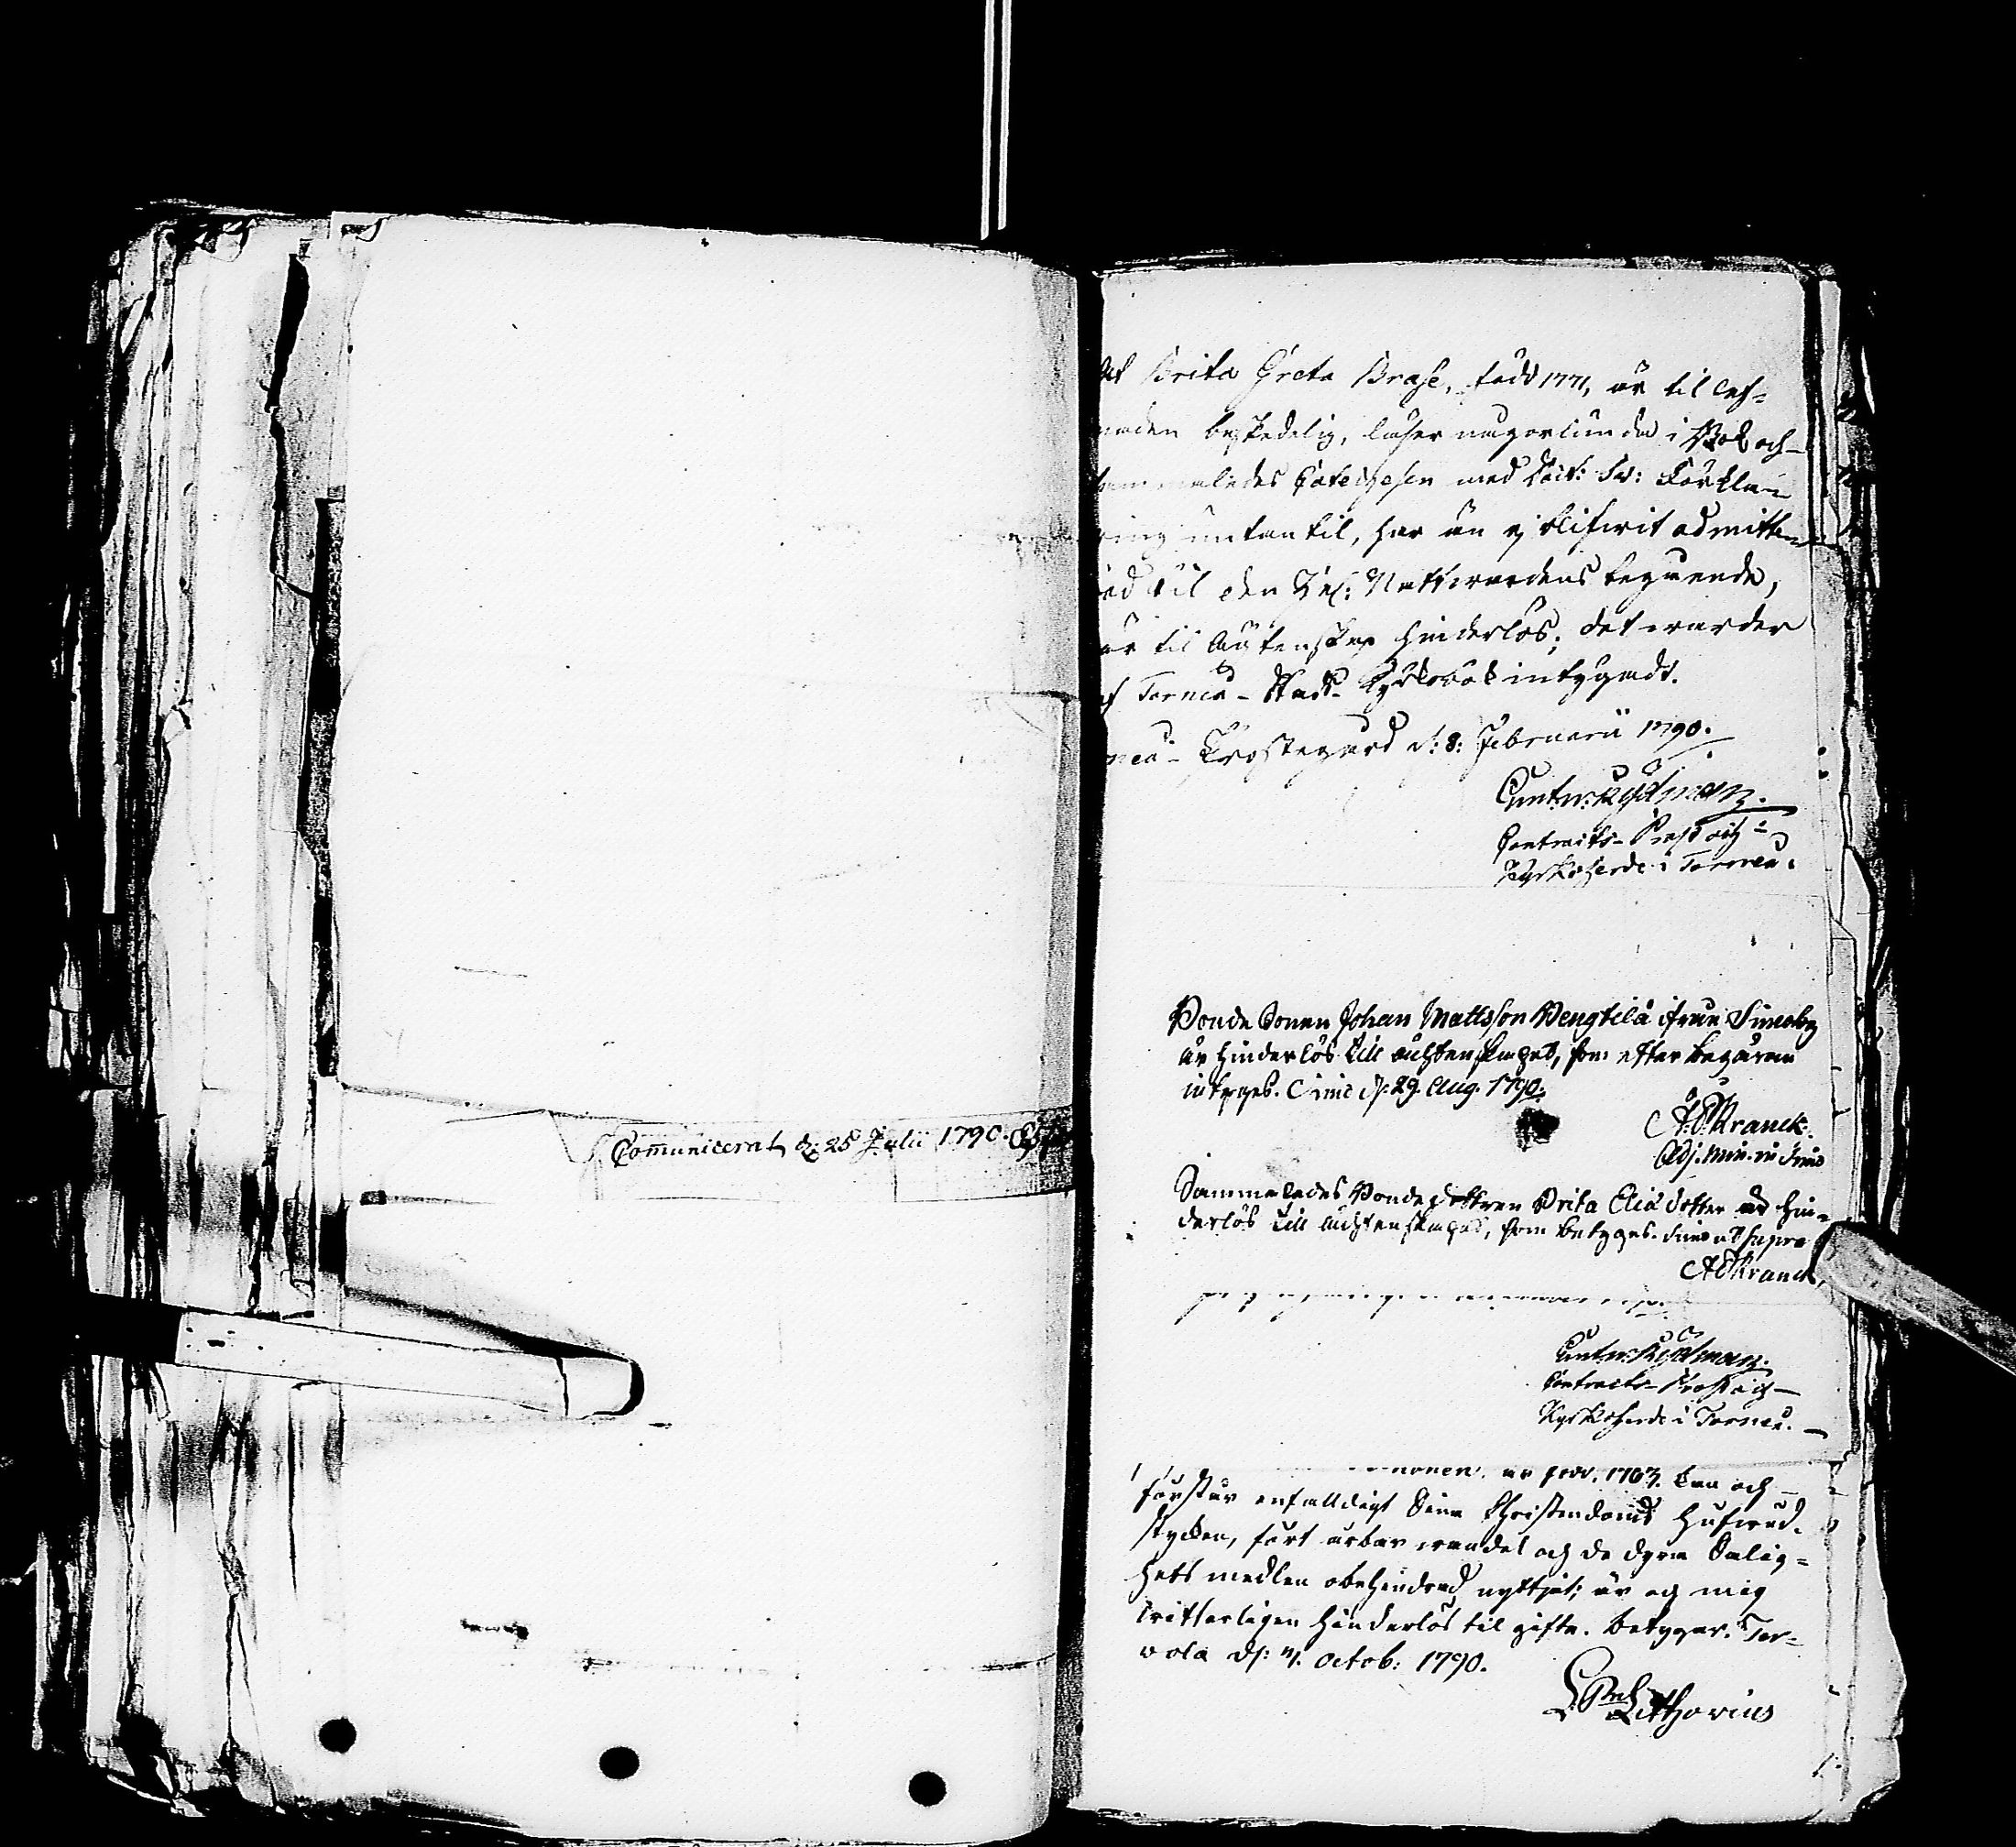 Communicerat d: 25 Julii 1790.
At Brita Greta Brase, född 1771, är til lef-
naden beskedelig, läser någorlunda i Bok och
sammaledes Catechesen med Doct: Sv: Förkla-
ring utantil, har än ej blifwit admitte-
rad til den H: Nattwardens begående,
är til äktenskap hinderlös; det warder
af Torneå Stads Kyrkobok intygadt.
neå Prostegård d: 8: Februarii 1790.
Contracts-Prost och
Kyrkoherde i Torneå.
Bonde Sonen Johan Mattsson Pengtilä ifrån Simoby
är hinderlös till ächtenskapet, som efter begäran
intygas. Simo d. 29. Aug. 1790.
Kranck.
Adj. Min. in Simo
Sammaledes Bondedottren Brita Elia dotter är hin-
derlös till ächtenskapet, som betyges. Simo ut supra
Kranck
Contracts-Prost och
Kyrkoherde i Torneå.
nonen, är född 1763. Kan och
förstår enfalldigt Sine Christendoms Hufwud-
stycken, fört ärbar wandel och de dyra Salig-
hets medlen obehindrad nyttjat; är og mig
witterligen hinderlös til gifte. betygar. Ter-
vola d: 7. Octob: 1790.
Lithovius